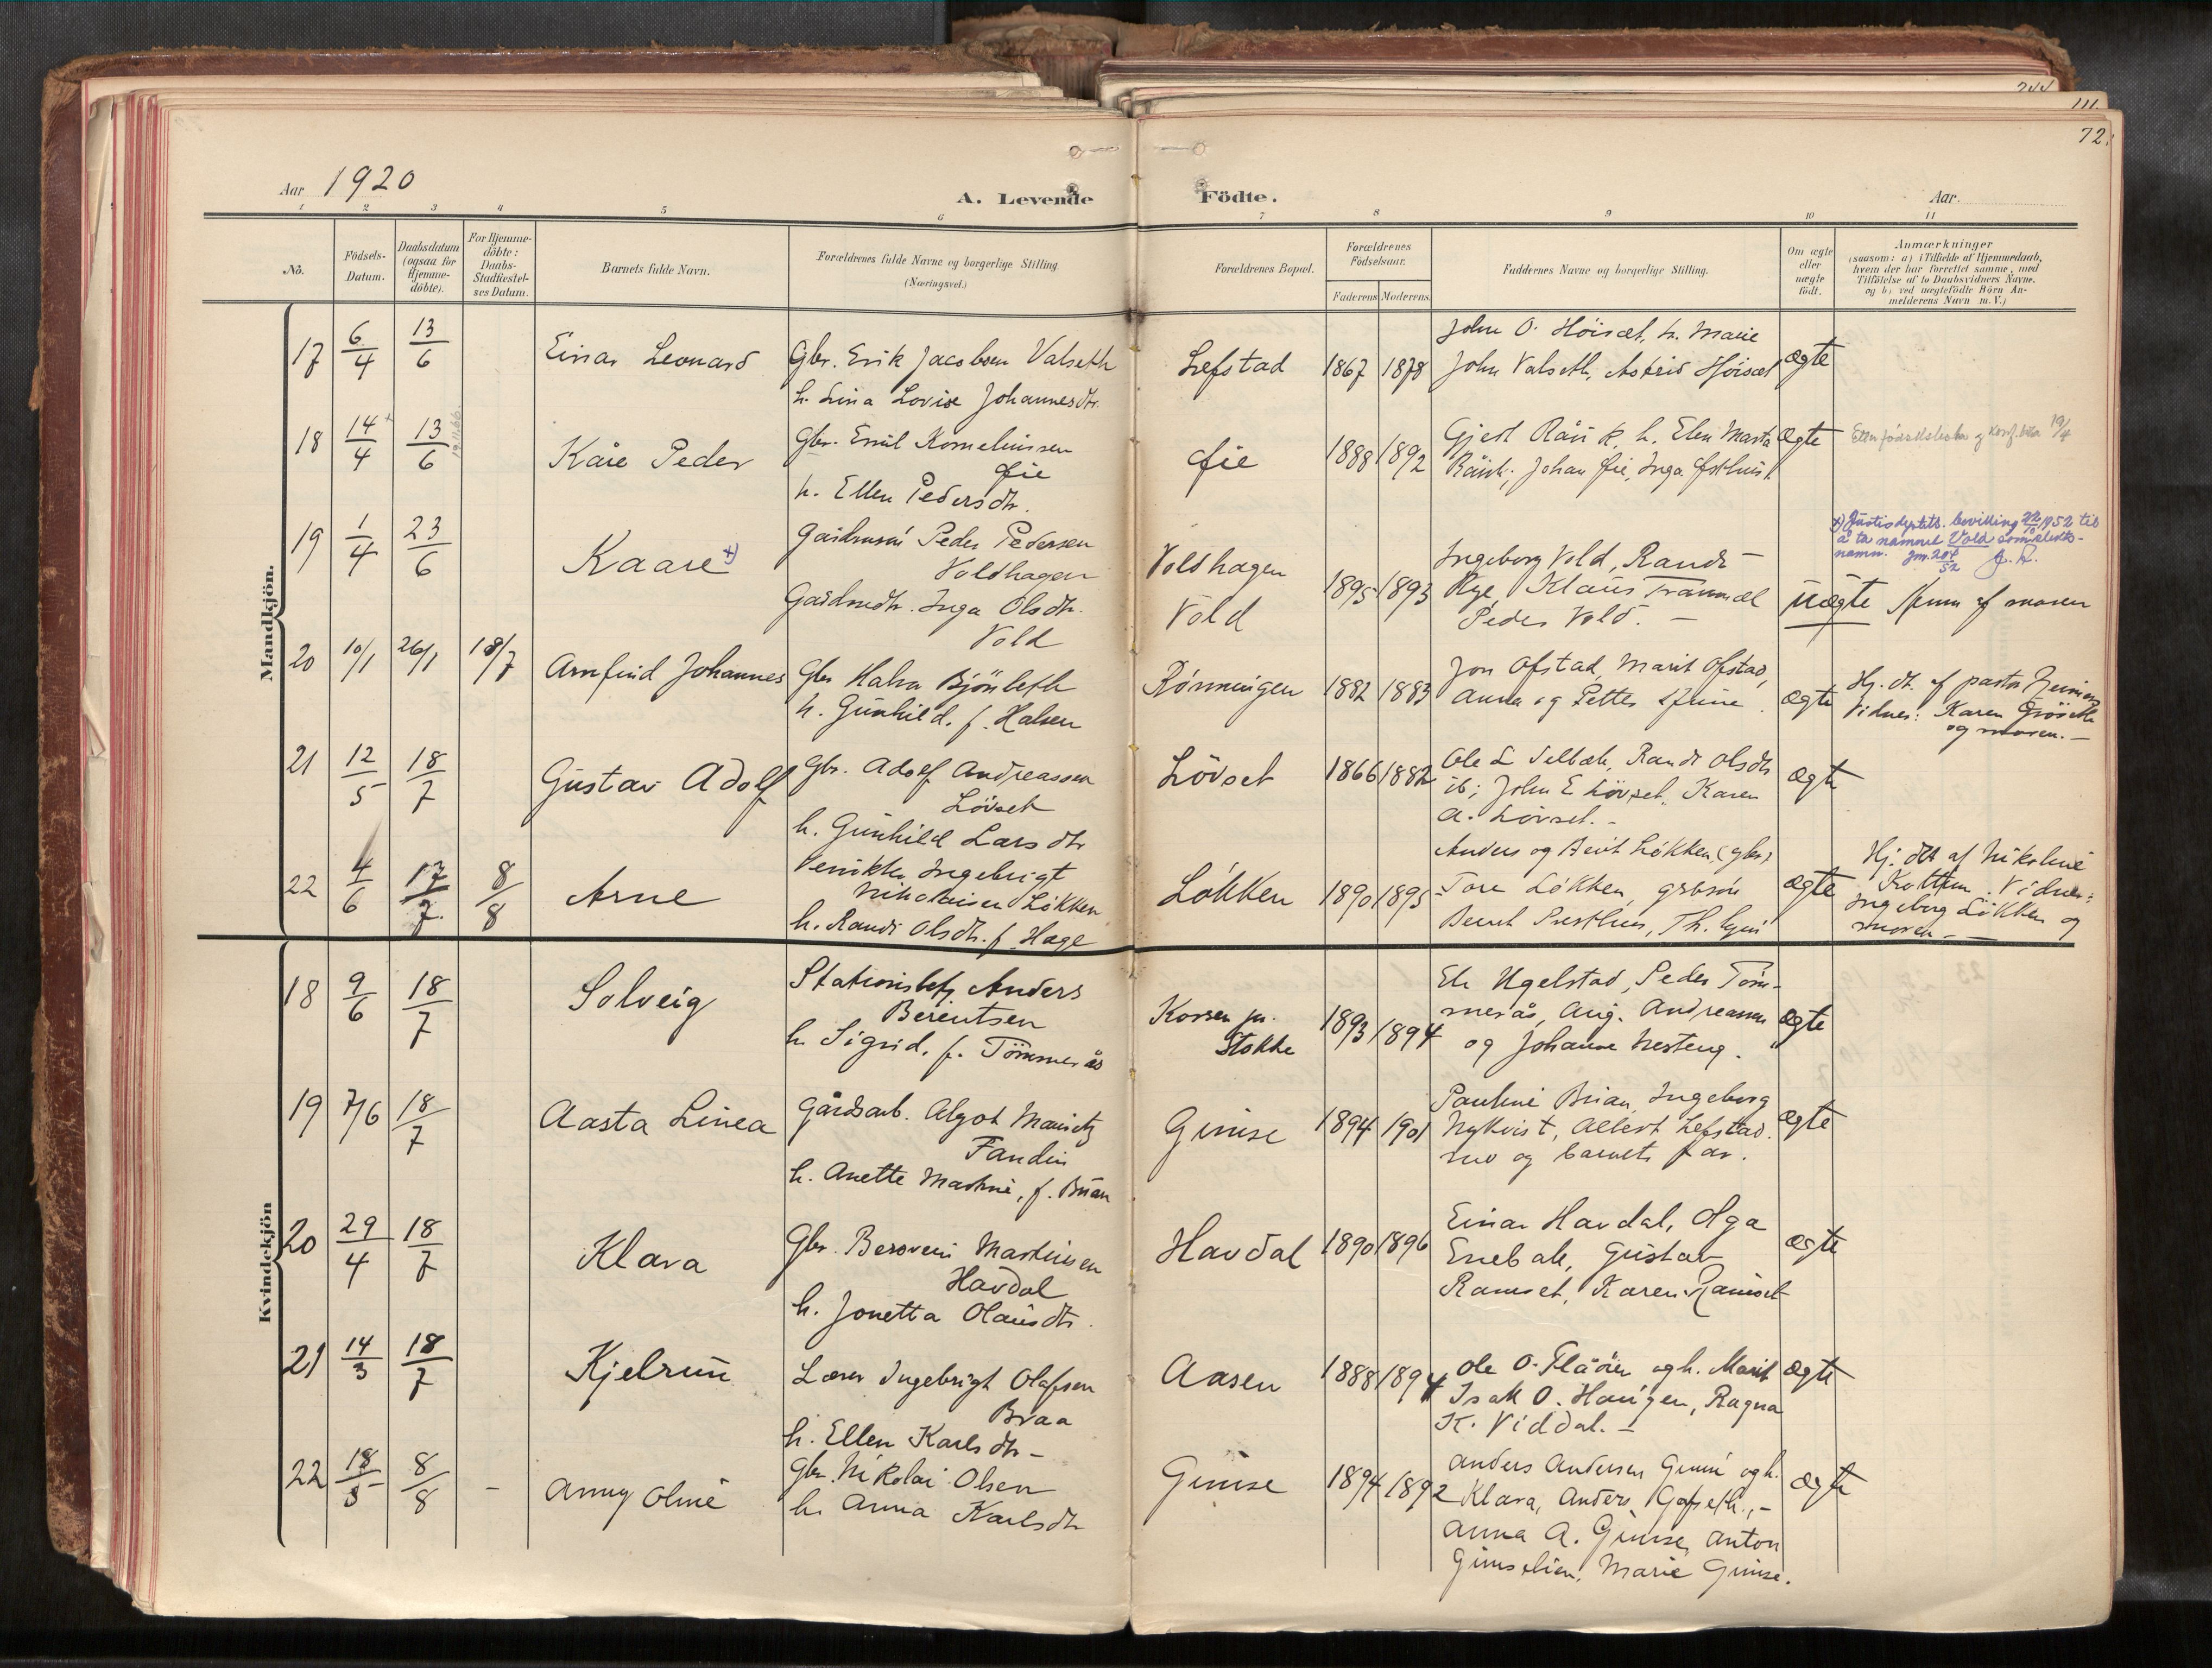 244
111.
72.
Aar 1920
A. Levende Födte.
Aar
1 2 3 4 5 6 7 8 9 10 11
No.
Födsels-Datum.
Daabsdatum (ogsaa for Hjemme-döbte).
For Hjemme-döbte: Daabs-Stadfæstel-ses Datum.
Barnets fulde Navn.
Forældrenes fulde Navne og borgerlige Stilling. (Næringsvei.)
Forældrenes Bopæl.
Forældrenes Födselsaar.
Faderens Moderens.
Faddernes Navne og borgerlige Stilling.
Om ægte eller uægte födt.
Anmærkninger
(saasom: a) i Tilfælde af Hjemmedaab,
hvem der har forrettet samme, med
Tilföielse af to Daabsvidners Navne.
og b) ved uægtefödte Börn An-
melderens Navn m. V.)
Mandkjön.
17 6/4 13/6 Einar Leonard
Gbr. Erik Jacobsen Valseth
h. Lina Lovise Johannesdtr.
Lefstad 1867 1878
John O. Höisæt, h. Marie
John Valseth, Astrid Höisæt
ægte
18 14/4 13/6 Kåre Peder
Gbr. Emil Korneliussen
Øie
h. Ellen Pedersdtr.
Øie 1888 1892
Gjert Råvik, h. Elen Marta
Råvik; Johan Øie, Inga
ægte
19/4
19 1/4 23/6 Kaare x)
Gaardmands. Peder Pedersen
Voldhagen
Gaardmdtr. Inga Olsdtr.
Vold
Voldhagen
Vold
1895 1893
Ingeborg Vold, Randi
Rye Klaus Trammæl
Peder Vold. –
uægte
x) Justisdeptets. bevilling 22/10 1952 til
å ta navnet Vold som slekts-
namn. Jnr. 204/52
Anm af moren
20 10/1 26/1 18/7 Arnfind Johannes
Gbr Halvor Björseth
h. Gunhild. f. Halsen
Rönningen 1882 1883
Jon Ofstad, Marit Ofstad,
Anna og Petter
ægte
Hj. dt. af pastor
Vidner: Karen Grösseth
og moren. –
21 12/5 18/7 Gustav Adolf
Gbr. Adolf Andreassen
Lövset
h. Gunhild Larsdtr
Lövset 1866 1882
Ole L Selbæk, Randi Olsdtr
ib; John E Lövset, Karen
A. Lövset. –
ægte
22 4/6 17/7. 8/8 Arne
Ingebrigt
Nikolaisen Løkken
h. Randi Olsdtr. f. Hage
Løkken 1890 1895
Anders og Berit Løkken, (gbr)
Tore Løkken, grbsön
Berit Presthus, Th.
ægte
Hj. dbt af Nikoline
Kottum. Vidner:
Ingeborg Løkken og
moren –
Kvindekjön
18 9/6 18/7 Solveig
Stationsbetj. Anders
Berentsen
h. Sigrid, f. Tömmerås
Korsen pr.
Stokke
1893 1894
Ele Ugelstad, Peder Töm-
merås, Aug. Andreassen
og Johanne Nesteng.
ægte
19 7/6 18/7 Aasta Linea
Gårdsarb. Algot Mauritz
Fandin
h. Anette Martine, f. Brian
Gimse 1894 1901
Pauline Brian, Ingeborg
Nykvist, Albert Lefstad.
mo og barnets far.
ægte
20 29/4 18/7 Klara
Gbr. Berovin Martinsen
Havdal
h. Jonetta Olausdtr.
Havdal 1890 1896
Einar Havdal, Olga
Enebak, Gustav
Ramset, Karen Ramset
ægte
21 14/3 18/7 Kjelrun
Lærer Ingebrigt Olafsen
Braa
h. Ellen Karlsdtr –
Aasen 1888 1894
Ole O. Flåöien og h. Marit
Isak O. Haugen, Ragna
K. Viddal. –
ægte
22 18/5 8/8 – Anny Oline
Gbr. Nikolai Olsen
h. Anna Karlsdtr
Gimse 1894 1892
Anders Andersen Gimse og h.
Klara, Anders Gofseth, –
Anna A. Gimse, Anton
Gimselien, Marie Gimse.
ægte